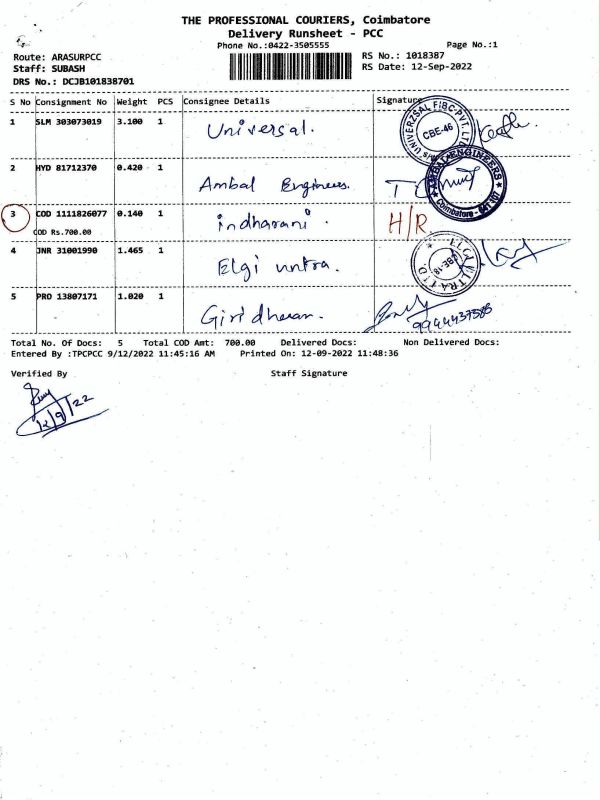 THE PROFESSIONAL COURIERS, Coimbatore
Delivery Runsheet - PCC
Phone No.:0422-3505555
Page No.:1
Route: ARASURPCC
RS No.: 1018387
Staff: SUBASH
RS Date: 12-Sep-2022
DRS No.: DCJB101838701
S No Consignment No Weight PCS Consignee Details Signature
1 SLM 303073019 3.100 1 Universal.
CBE-46
2 HYD 81712370 0.420 1 Ambal Engineers.
AMBAL ENGINEERS
Coimbatore - 641 407
3 COD 1111826077 0.140 1 indharani. H/R
COD Rs.700.00
4 JNR 31001990 1.465 1 Elgi untra.
5 PRD 13807171 1.020 1 Giridharan.
Total No. Of Docs: 5 Total COD Amt: 700.00 Delivered Docs: Non Delivered Docs:
Entered By :TPCPCC 9/12/2022 11:45:16 AM Printed On: 12-09-2022 11:48:36
Verified By Staff Signature
12/9/22